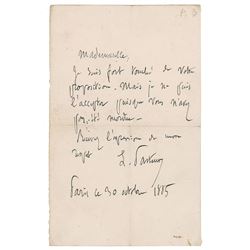 Mademoiselle,
Je suis fort touché de votre
proposition. Mais je ne puis
l'accepter puisque vous n'avez
pas été
l'expression de mon
L. Pasteur
Paris ce 30 octobre 1885